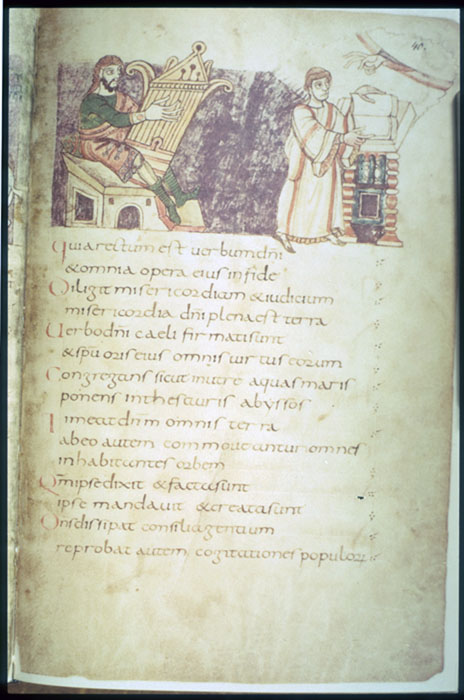 Quia rectum est verbum dni
& omnia opera eius in fide
Diligit misericordiam & iudicium
misericordia dni plena est terra
Verbo dni caeli firmati sunt
& spu oris eius omnis virtus eorum
Congregans sicut in utre aquas maris
ponens in thesauris abyssos
Timeat dnm omnis terra
ab eo autem commoveantur omnes
inhabitantes orbem
Qm ipse dixit & facta sunt
ipse mandavit & creata sunt
Dns dissipat consilia gentium
reprobat autem cogitationes populoꝝ